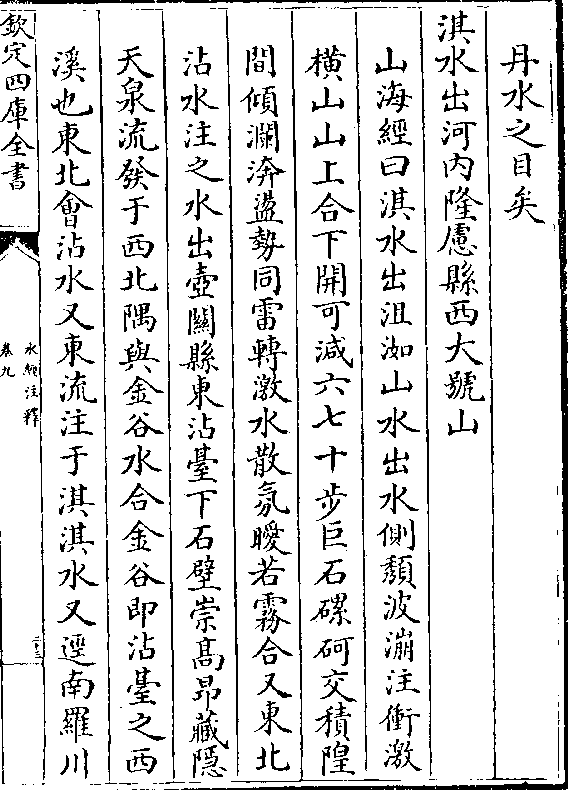 丹水之目矣
淇水出河內隆慮縣西大號山
山海經曰淇水出沮洳山水出水側頽波漰注衝激
橫山山上合下開可減六七十步巨石磥砢交積隍
間傾瀾漰盪勢同雷轉激水散氛曖若霧合又東北
沾水注之水出壺關縣東沾臺下石壁崇髙昂藏隠
天泉流發于西北隅與金谷水合金谷即沾臺之西
溪也東北會沾水又東流注于淇淇水又逕南羅川
欽定四庫全書
水經注釋
卷九
二十三